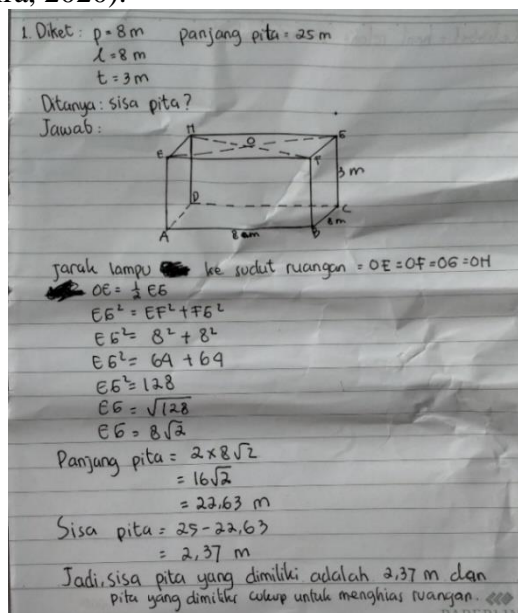 ra, 2020).
1. Diket : p = 8 m panjang pita = 25 m
l = 8 m
t = 3 m
Ditanya : sisa pita ?
Jawab :
H G
E O F
3 m
D C
8 m
A 8 cm B
Jarak lampu ke sudut ruangan = OE = OF = OG = OH
OE = 1/2 EG
EG² = EF² + FG²
EG² = 8² + 8²
EG² = 64 + 64
EG² = 128
EG = √128
EG = 8√2
Panjang pita = 2 x 8√2
= 16√2
= 22,63 m
Sisa pita = 25 - 22,63
= 2,37 m
Jadi, sisa pita yang dimiliki adalah 2,37 m dan
pita yang dimiliki cukup untuk menghias ruangan.